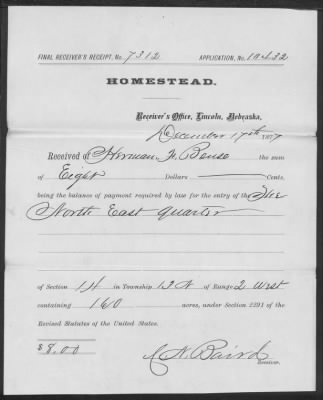 FINAL RECEIVER'S RECEIPT, No. 7312 APPLICATION, No. 10432
HOMESTEAD.
Receiver's Office, Lincoln, Nebraska,
December 17th 1877
Received of Herman F. Bense the sum
of Eight Dollars Cents,
being the balance of payment required by law for the entry of the
North East quarter
of Section 14 in Township 12 N of Range 2 West
containing 160 acres, under Section 2291 of the
Revised Statutes of the United States.
$8.00
N. Baird
Receiver.